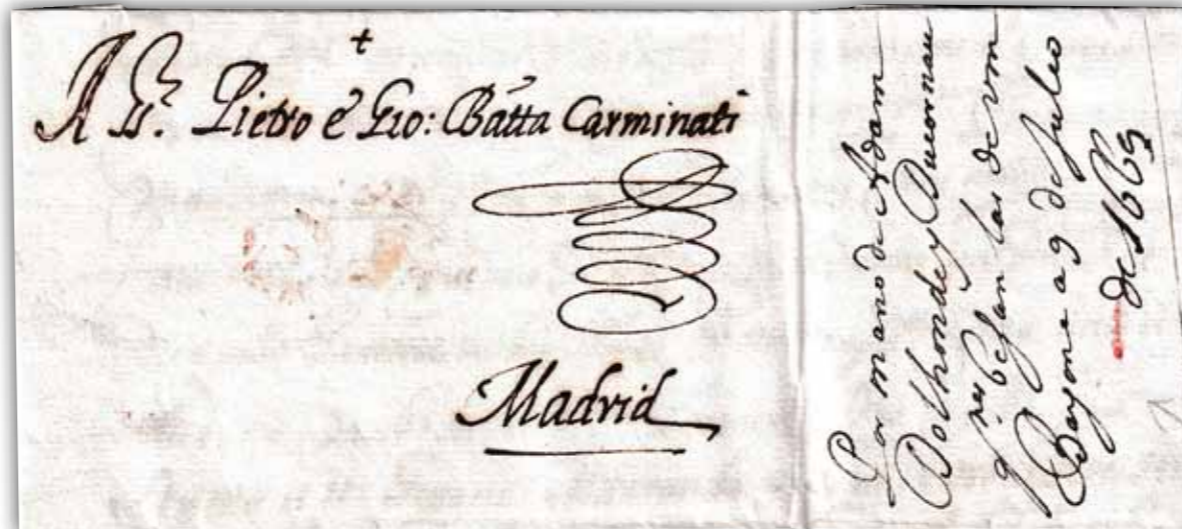 +
A S. Pietro e Gio: Batta Carminati
Madrid
Por mano de Adam
Dolhonde y
besan las de vm
Bayona a 9 de Julio
de 1665